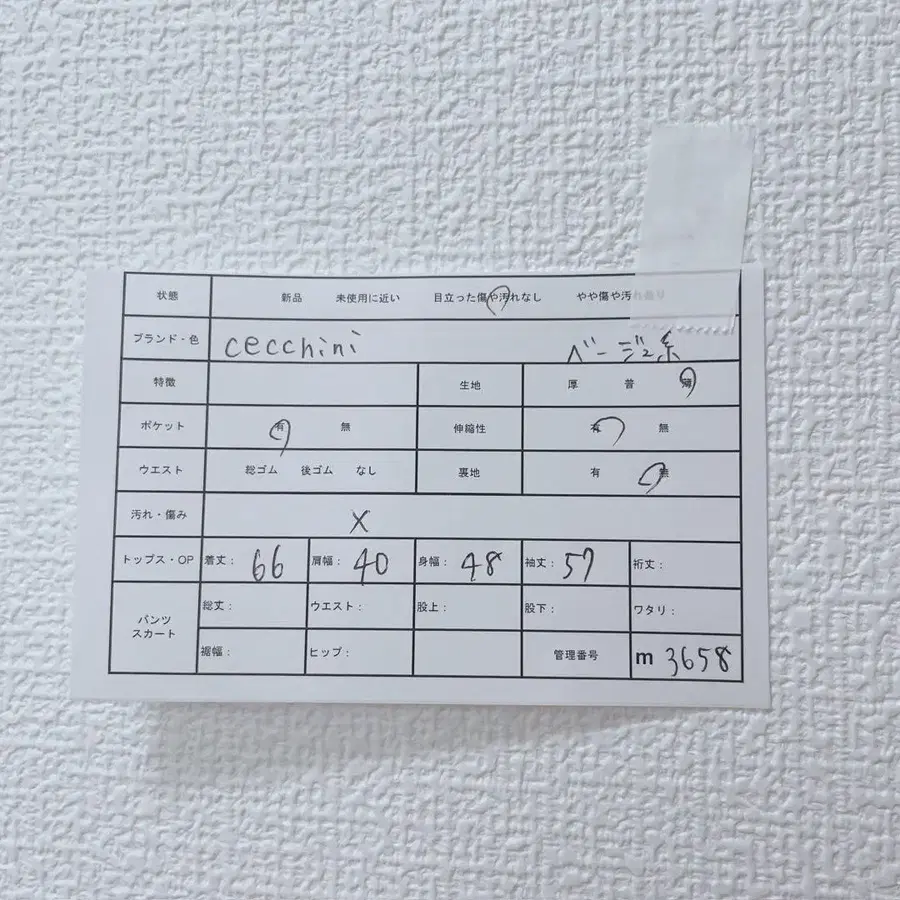 状態 新品 未使用に近い 目立った傷や汚れなし やや傷や汚れあり
ブランド・色 cecchini ベージュ系
特徴 生地 厚 普 薄
ポケット 有 無 伸縮性 有 無
ウエスト 総ゴム 後ゴム なし 裏地 有 無
汚れ・傷み X
トップス・OP 着丈: 66 肩幅: 40 身幅: 48 袖丈: 57 裄丈:
パンツ スカート
総丈: ウエスト: 股上: 股下: ワタリ:
裾幅: ヒップ: 管理番号 m 3658